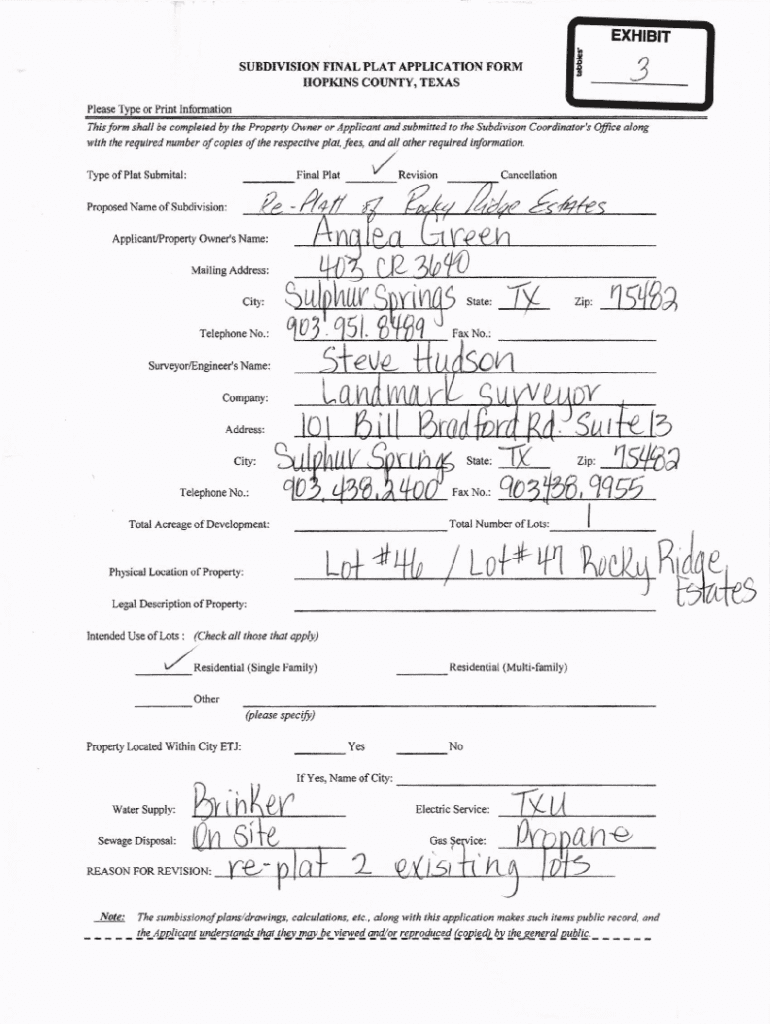 EXHIBIT
tabbies'
3
SUBDIVISION FINAL PLAT APPLICATION FORM
HOPKINS COUNTY, TEXAS
Please Type or Print Information
This form shall be completed by the Property Owner or Applicant and submitted to the Subdivison Coordinator's Office along
with the required number of copies of the respective plat, fees, and all other required information.
Type of Plat Submital: ______ Final Plat ✓ Revision ______ Cancellation
Proposed Name of Subdivision: Re-Platt of Rocky Ridge Estates
Applicant/Property Owner's Name: Anglea Green
Mailing Address: 403 CR 3640
City: Sulphur Springs State: TX Zip: 75482
Telephone No.: 903.951.8489 Fax No.:
Surveyor/Engineer's Name: Steve Hudson
Company: Landmark Surveyor
Address: 101 Bill Bradford Rd. Suite 13
City: Sulphur Springs State: TX Zip: 75482
Telephone No.: 903.438.2400 Fax No.: 903.438.9955
Total Acreage of Development: Total Number of Lots: 1
Physical Location of Property: Lot #46 / Lot #47 Rocky Ridge
Estates
Legal Description of Property:
Intended Use of Lots : (Check all those that apply)
✓ Residential (Single Family) ______ Residential (Multi-family)
______ Other
(please specify)
Property Located Within City ETJ: ______ Yes ______ No
If Yes, Name of City:
Water Supply: Brinker Electric Service: TXU
Sewage Disposal: On Site Gas Service: Propane
REASON FOR REVISION: re-plat 2 exisiting lots
Note: The sumbissionof plans/drawings, calculations, etc., along with this application makes such items public record, and
the Applicant understands that they may be viewed and/or reproduced (copied) by the general public.